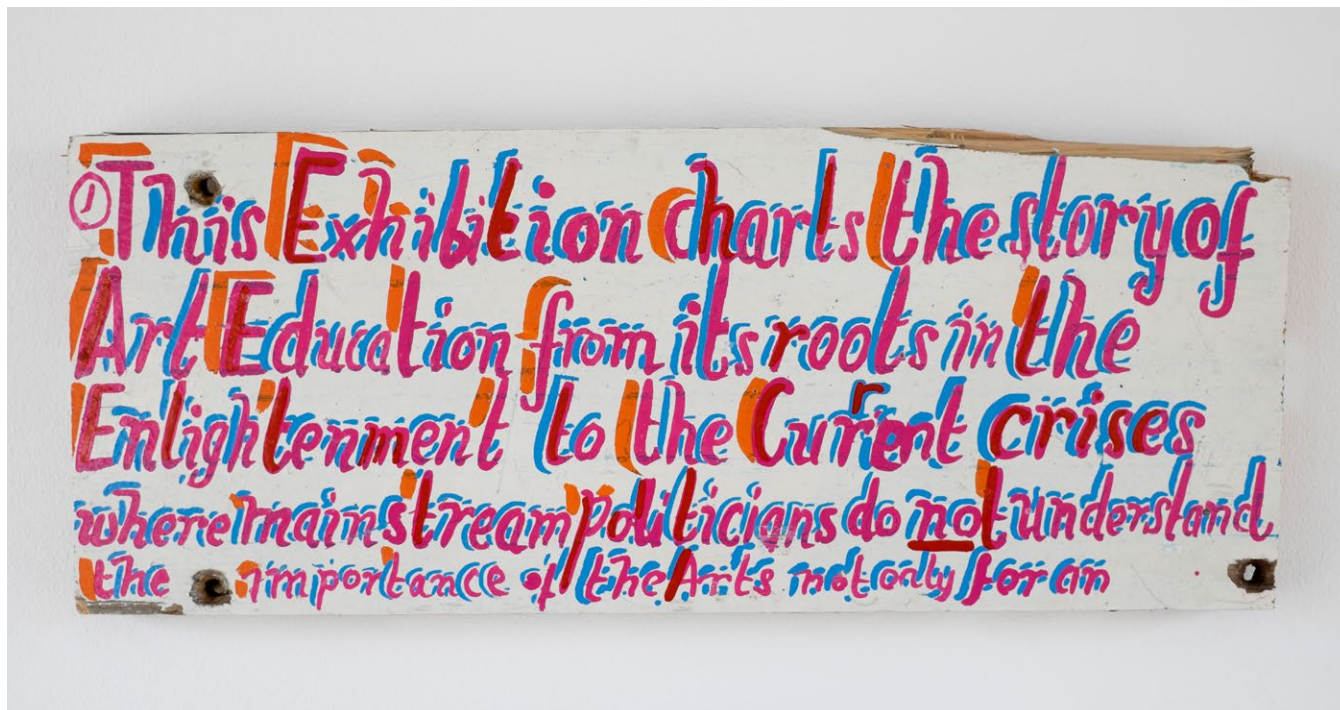 ① This Exhibition charts the story of
Art Education from its roots in the
Enlightenment to the Current crises
where mainstream politicians do not understand
the importance of the Arts not only for an